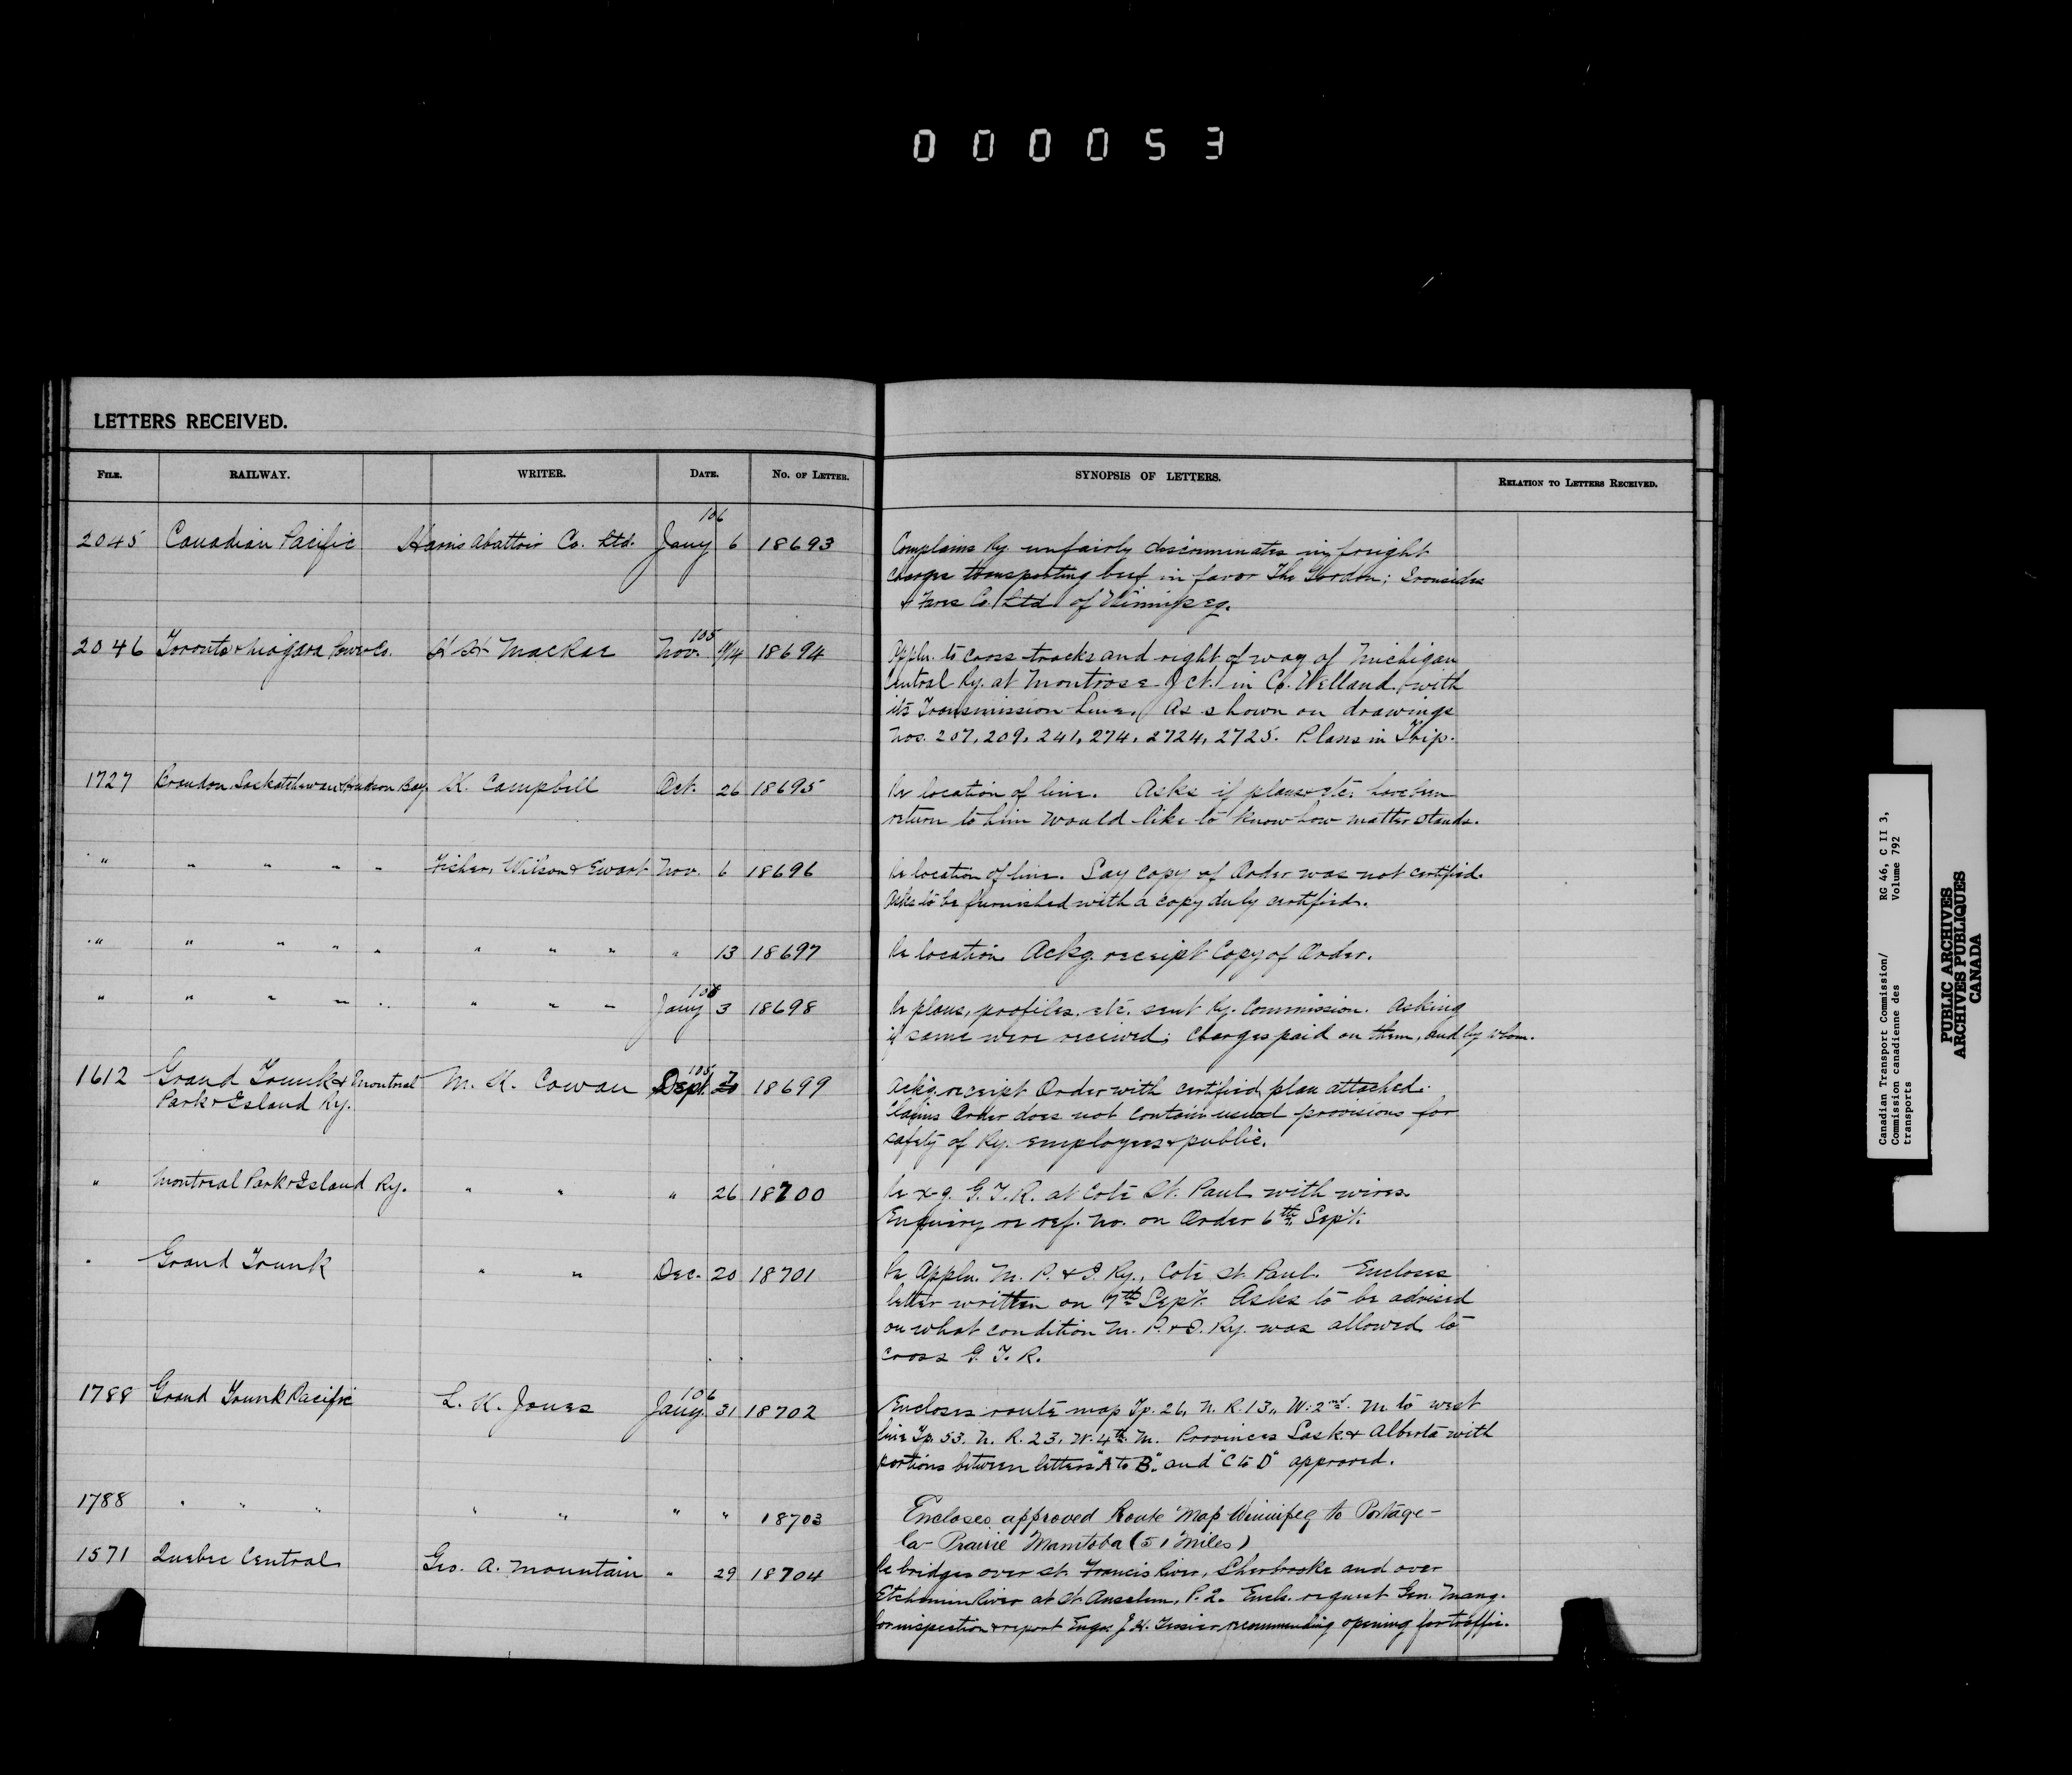 000053
LETTERS RECEIVED.
FILE. RAILWAY. WRITER. DATE. No. OF LETTER. SYNOPSIS OF LETTERS. RELATION TO LETTERS RECEIVED.
2045 Canadian Pacific Harris Abattoir Co. Ltd. Jany '06 6 18693 Complains Ry. unfairly discriminates in freight
charges transporting beef in favor The Gordon; Ironsides
& Fares Co. Ltd of Winnipeg.
2046 Toronto & Niagara Power Co. H. H. MacRae Nov. '05 14 18694 Appln. to cross tracks and right of way of Michigan
Central Ry. at Montrose Jct. in Co. Welland, with
its Transmission Lines. As shown on drawings
Nos. 207, 209, 241, 274, 2724, 2725. Plans in Trip.
1727 Brandon Saskatchewan & Hudson Bay K. Campbell Oct. 26 18695 Re location of line. Asks if plans etc. have been
return to him would like to know how matter stands.
" " " " " Fisher, Wilson & Ewart Nov. 6 18696 Re location of line. Say copy of Order was not certified.
Asks to be furnished with a copy duly certified.
" " " " " " " " " 13 18697 Re location. Ackg. receipt Copy of Order.
" " " " " " " " Jany '06 3 18698 Re plans, profiles, etc. sent Ry. Commission. Asking
if same were received; Charges paid on them, and by whom.
1612 Grand Trunk & Montreal
Park & Island Ry. M. K. Cowan Sept. '05 18699 Ackg. receipt Order with certified plan attached.
Claims Order does not contain usual provisions for
safety of Ry. employees & public.
" Montreal Park & Island Ry. " " " 26 18700 Re x-g. G. T. R. at Coté St. Paul with wires.
Enquiry re ref. no. on Order 6th Sept.
" Grand Trunk " " Dec. 20 18701 Re Appln. M. P. & I. Ry., Coté St. Paul. Encloses
letter written on 7th Sept. Asks to be advised
on what condition M. P. & I. Ry. was allowed to
cross G. T. R.
1788 Grand Trunk Pacific L. K. Jones Jany. '06 31 18702 Encloses route map Tp. 26, N. R. 13, W. 2nd. M. to west
line Tp. 53. N. R. 23. W. 4th. M. Provinces Sask. & Alberta with
portions between letters "A to B" and "C to D" approved.
1788 " " " " " " " 18703 Encloses approved Route Map Winnipeg to Portage-
la-Prairie Manitoba (51 Miles)
1571 Quebec Central Geo. A. Mountain " 29 18704 Re bridges over St. Francis River, Sherbrooke and over
Etchemin River at St. Anselem, P.Q. Encls. request Gen. Mang.
for inspection & report Engr. J. H. Tessier recommending opening for traffic.
Canadian Transport Commission/ RG 46, C II 3,
Commission canadienne des Volume 792
transports
PUBLIC ARCHIVES
ARCHIVES PUBLIQUES
CANADA